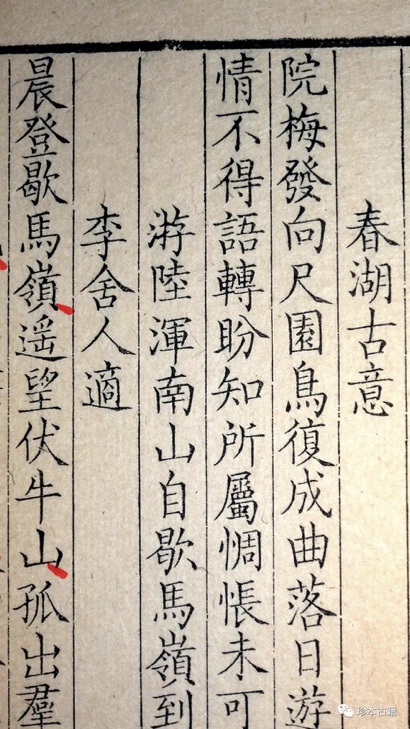 春湖古意
院梅發向尺園鳥復成曲落日遊
情不得語轉盼知所屬惆悵未可
游陸渾南山自歇馬嶺到
李舍人適
晨登歇馬嶺遥望伏牛山孤出羣
珍本古籍